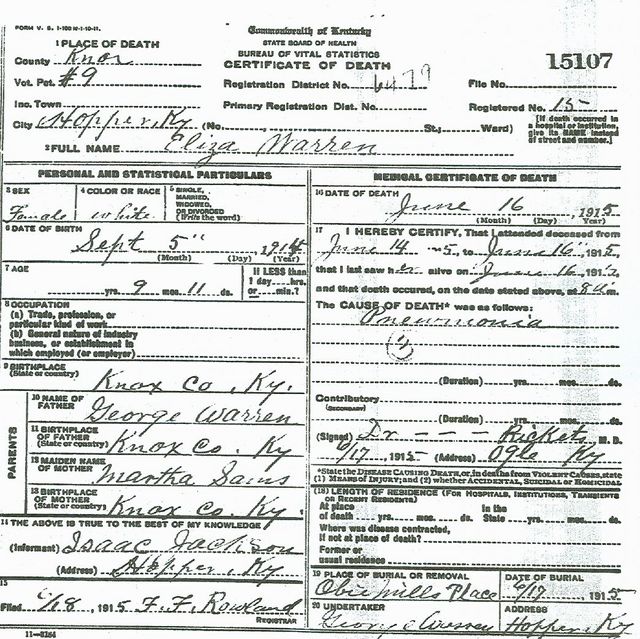 FORM V. S. 1-100 M-1-10-11.
Commonwealth of Kentucky
STATE BOARD OF HEALTH
BUREAU OF VITAL STATISTICS
CERTIFICATE OF DEATH
15107
1 PLACE OF DEATH
County Knox
Vot. Pct. #9
Inc. Town
City Hopper, Ky (No. St.; Ward)
Registration District No. 6479
File No.
Primary Registration Dist. No.
Registered No. 15
[If death occurred in a hospital or institution, give its NAME instead of street and number.]
2 FULL NAME Eliza Warren
PERSONAL AND STATISTICAL PARTICULARS
3 SEX
Female
4 COLOR OR RACE
White
5 SINGLE, MARRIED, WIDOWED, OR DIVORCED (Write the word)
6 DATE OF BIRTH
Sept 5" 1914
(Month) (Day) (Year)
7 AGE
yrs. 9 mos. 11 ds.
If LESS than 1 day---hrs. or---min.?
8 OCCUPATION
(a) Trade, profession, or particular kind of work
(b) General nature of industry business, or establishment in which employed (or employer)
9 BIRTHPLACE
(State or country) Knox Co. Ky.
PARENTS
10 NAME OF FATHER George Warren
11 BIRTHPLACE OF FATHER (State or country) Knox Co Ky
12 MAIDEN NAME OF MOTHER Martha Sams
13 BIRTHPLACE OF MOTHER (State or country) Knox Co. Ky.
14 THE ABOVE IS TRUE TO THE BEST OF MY KNOWLEDGE
(Informant) Isaac Jackson
(Address) Hopper, Ky
15
Filed 6/18, 1915 F. F. Rowland
REGISTRAR
11-3264
MEDICAL CERTIFICATE OF DEATH
16 DATE OF DEATH
June 16, 1915
(Month) (Day) (Year)
17 I HEREBY CERTIFY, That I attended deceased from
June 14 5, to June 16", 1915,
that I last saw her alive on June 16, 1915,
and that death occured, on the date stated above, at 8 am.
The CAUSE OF DEATH* was as follows:
Pneumonia
(Duration) yrs. mos. ds.
Contributory
(SECONDARY)
(Duration) yrs. mos. ds.
(Signed) Dr - - - Rickets, M. D.
6/17, 1915 (Address) Ogle Ky
*State the DISEASE CAUSING DEATH, or, in deaths from VIOLENT CAUSES, state
(1) MEANS OF INJURY; and (2) whether ACCIDENTAL, SUICIDAL or HOMICIDAL
(18) LENGTH OF RESIDENCE (FOR HOSPITALS, INSTITUTIONS, TRANSIENTS OR RECENT RESIDENTS)
At place of death yrs. mos. ds. In the State yrs. mos. ds.
Where was disease contracted, if not at place of death?
Former or usual residence
19 PLACE OF BURIAL OR REMOVAL
Obie Mills Place
DATE OF BURIAL
6/17, 1915
20 UNDERTAKER
George Warren
ADDRESS
Hopper, Ky